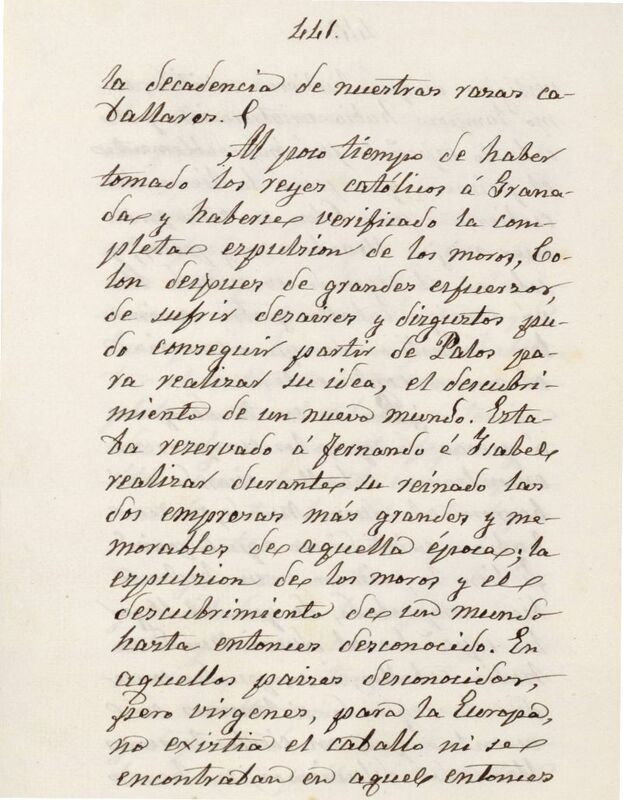 441.
la decadencia de nuestras razas ca-
ballares.
Al poco tiempo de haber
tomado los reyes católicos á Grana-
da y haberse verificado la com-
pleta expulsion de los moros, Co-
lon despues de grandes esfuerzos,
de sufrir desaires y disgustos pu-
do conseguir partir de Palos pa-
ra realizar su idea, el descubri-
miento de un nuevo mundo. Esta-
ba reservado á Fernando é Isabel
realizar durante su reinado las
dos empresas más grandes y me-
morables de aquella época; la
expulsion de los moros y el
descubrimiento de un mundo
hasta entonces desconocido. En
aquellos paises desconocidos,
pero virgenes, para la Europa,
no existia el caballo ni se
encontraban en aquel entonces